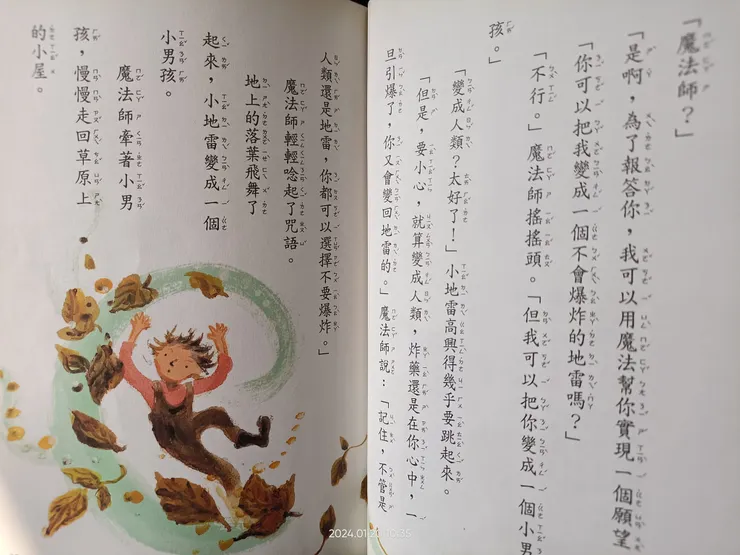 「魔法師？」
「是啊，為了報答你，我可以用魔法幫你實現一個願望
「你可以把我變成一個不會爆炸的地雷嗎？」
「不行。」魔法師搖搖頭。「但我可以把你變成一個小男
孩。」
「變成人類？太好了！」小地雷高興得幾乎要跳起來。
「但是，要小心，就算變成人類，炸藥還是在你心中，一
旦引爆了，你又會變回地雷的。」魔法師說：「記住，不管是
人類還是地雷，你都可以選擇不要爆炸。」
魔法師輕輕唸起了咒語。
地上的落葉飛舞了
起來，小地雷變成一個
小男孩。
魔法師牽著小男
孩，慢慢走回草原上
的小屋。